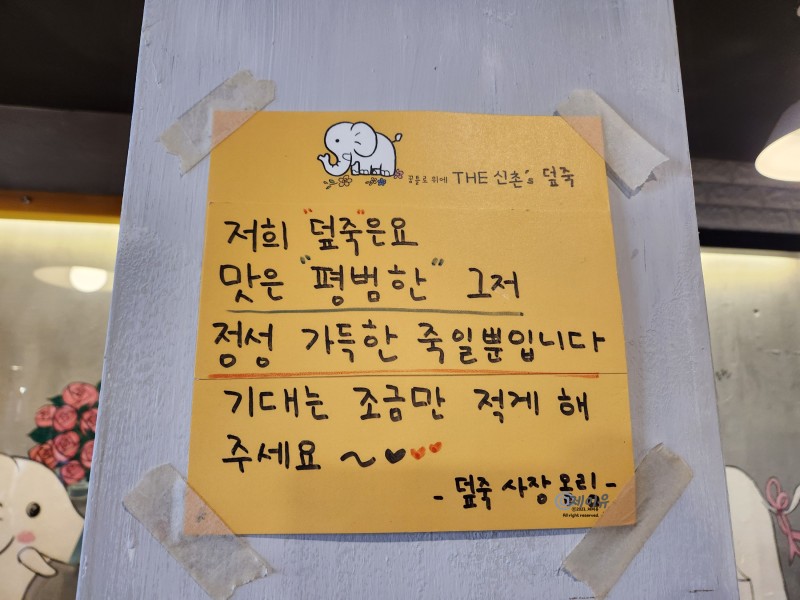 꽃들로 위에 THE 신촌's 덮죽
저희 "덮죽"은요
맛은 "평범한" 그저
정성 가득한 죽일뿐입니다
기대는 조금만 적게 해
주세요 ~♥♥♥
- 덮죽 사장 올림 -
제어유
©2021. 제어유
All right reserved.